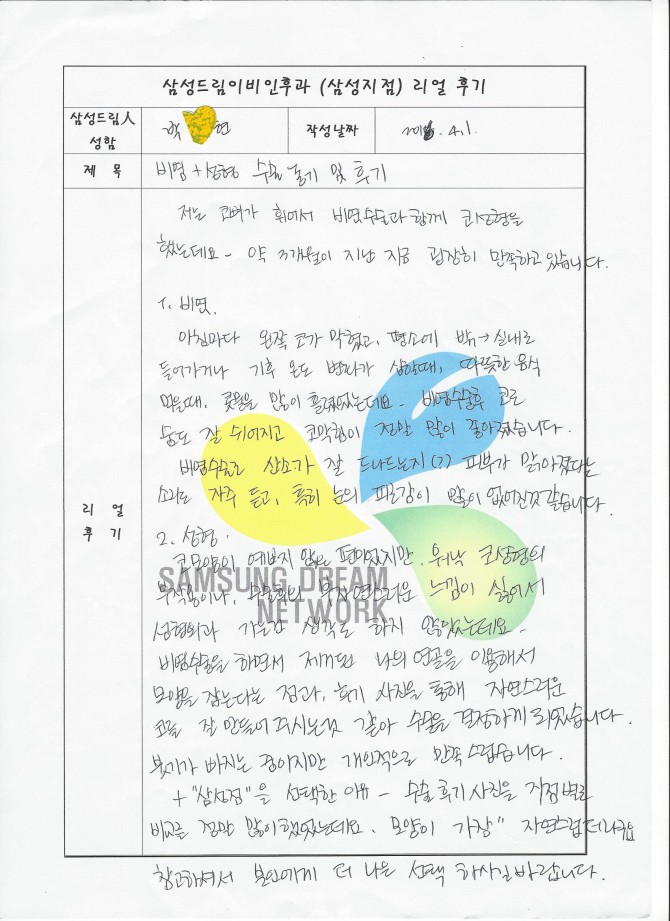 삼성드림이비인후과 (삼성지점) 리얼 후기
삼성드림人
성함
박 연
작성날짜
4.1.
제 목
비염+성형 수술 동기 및 후기
저는 코뼈가 휘어서 비염수술과 함께 코성형을
했는데요- 약 3개월이 지난 지금 굉장히 만족하고 있습니다.
1. 비염.
아침마다 왼쪽 코가 막혔고, 평소에 밖→실내로
들어가거나 기후 온도 변화가 심할때, 따뜻한 음식
먹을때, 콧물을 많이 흘렸었는데요- 비염수술후 코로
숨도 잘 쉬어지고 코막힘이 정말 많이 좋아졌습니다.
비염수술로 산소가 잘 드나드는지(?) 피부가 맑아졌다는
소리도 자주 듣고, 특히 눈의 피로감이 많이 없어진것 같습니다.
리 얼
후 기
2. 성형.
코모양이 예쁘지 않은 편이었지만, 워낙 코성형의
부작용이나, 부자연스러운 느낌이 싫어서
SAMSUNG DREAM
NETWORK
성형외과 가는건 생각도 하지 않았는데요-
비염수술을 하면서 제거된 나의 연골을 이용해서
모양을 잡는다는 점과, 후기 사진을 통해 자연스러운
코를 잘 만들어 주시는것 같아 수술을 결정하게 되었습니다.
붓기가 빠지는 중이지만 개인적으로 만족스럽습니다.
+ "삼성점"을 선택한 이유 - 수술 후기 사진을 지점별로
비교를 정말 많이 했었는데요, 모양이 가장" 자연스럽더라구요
참고하셔서 본인에게 더 나은 선택 하시길 바랍니다.